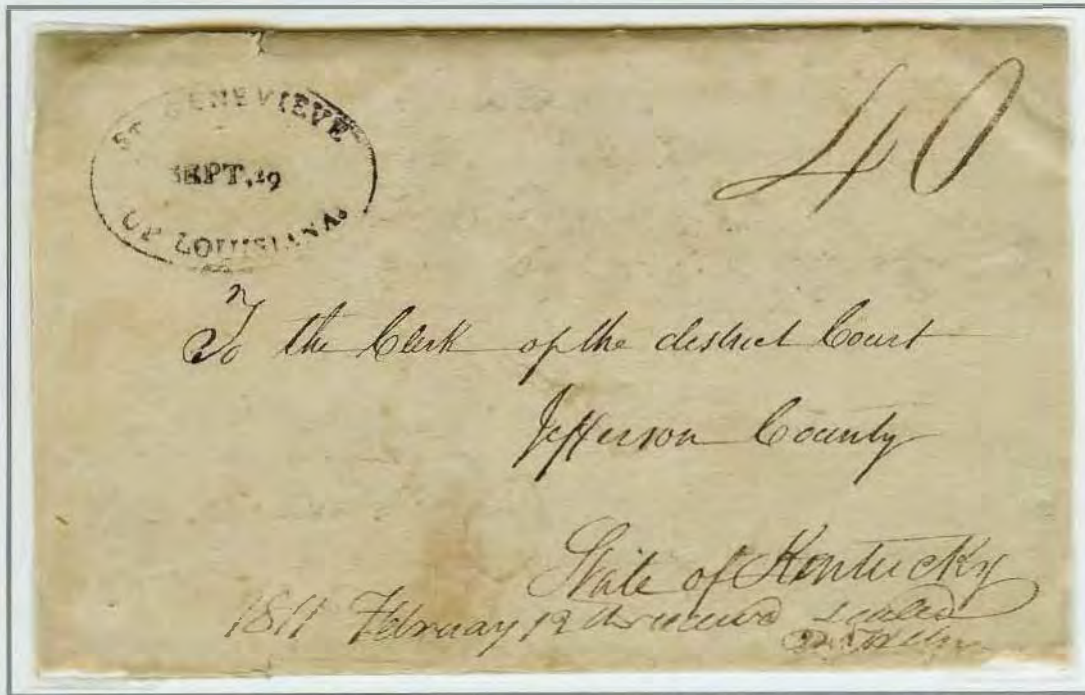 ST. GENEVIEVE
SEPT. 29
OF LOUISIANA.
40
To the Clerk of the district Court
Jefferson County
State of Kentucky
1811 February 12th received sealed